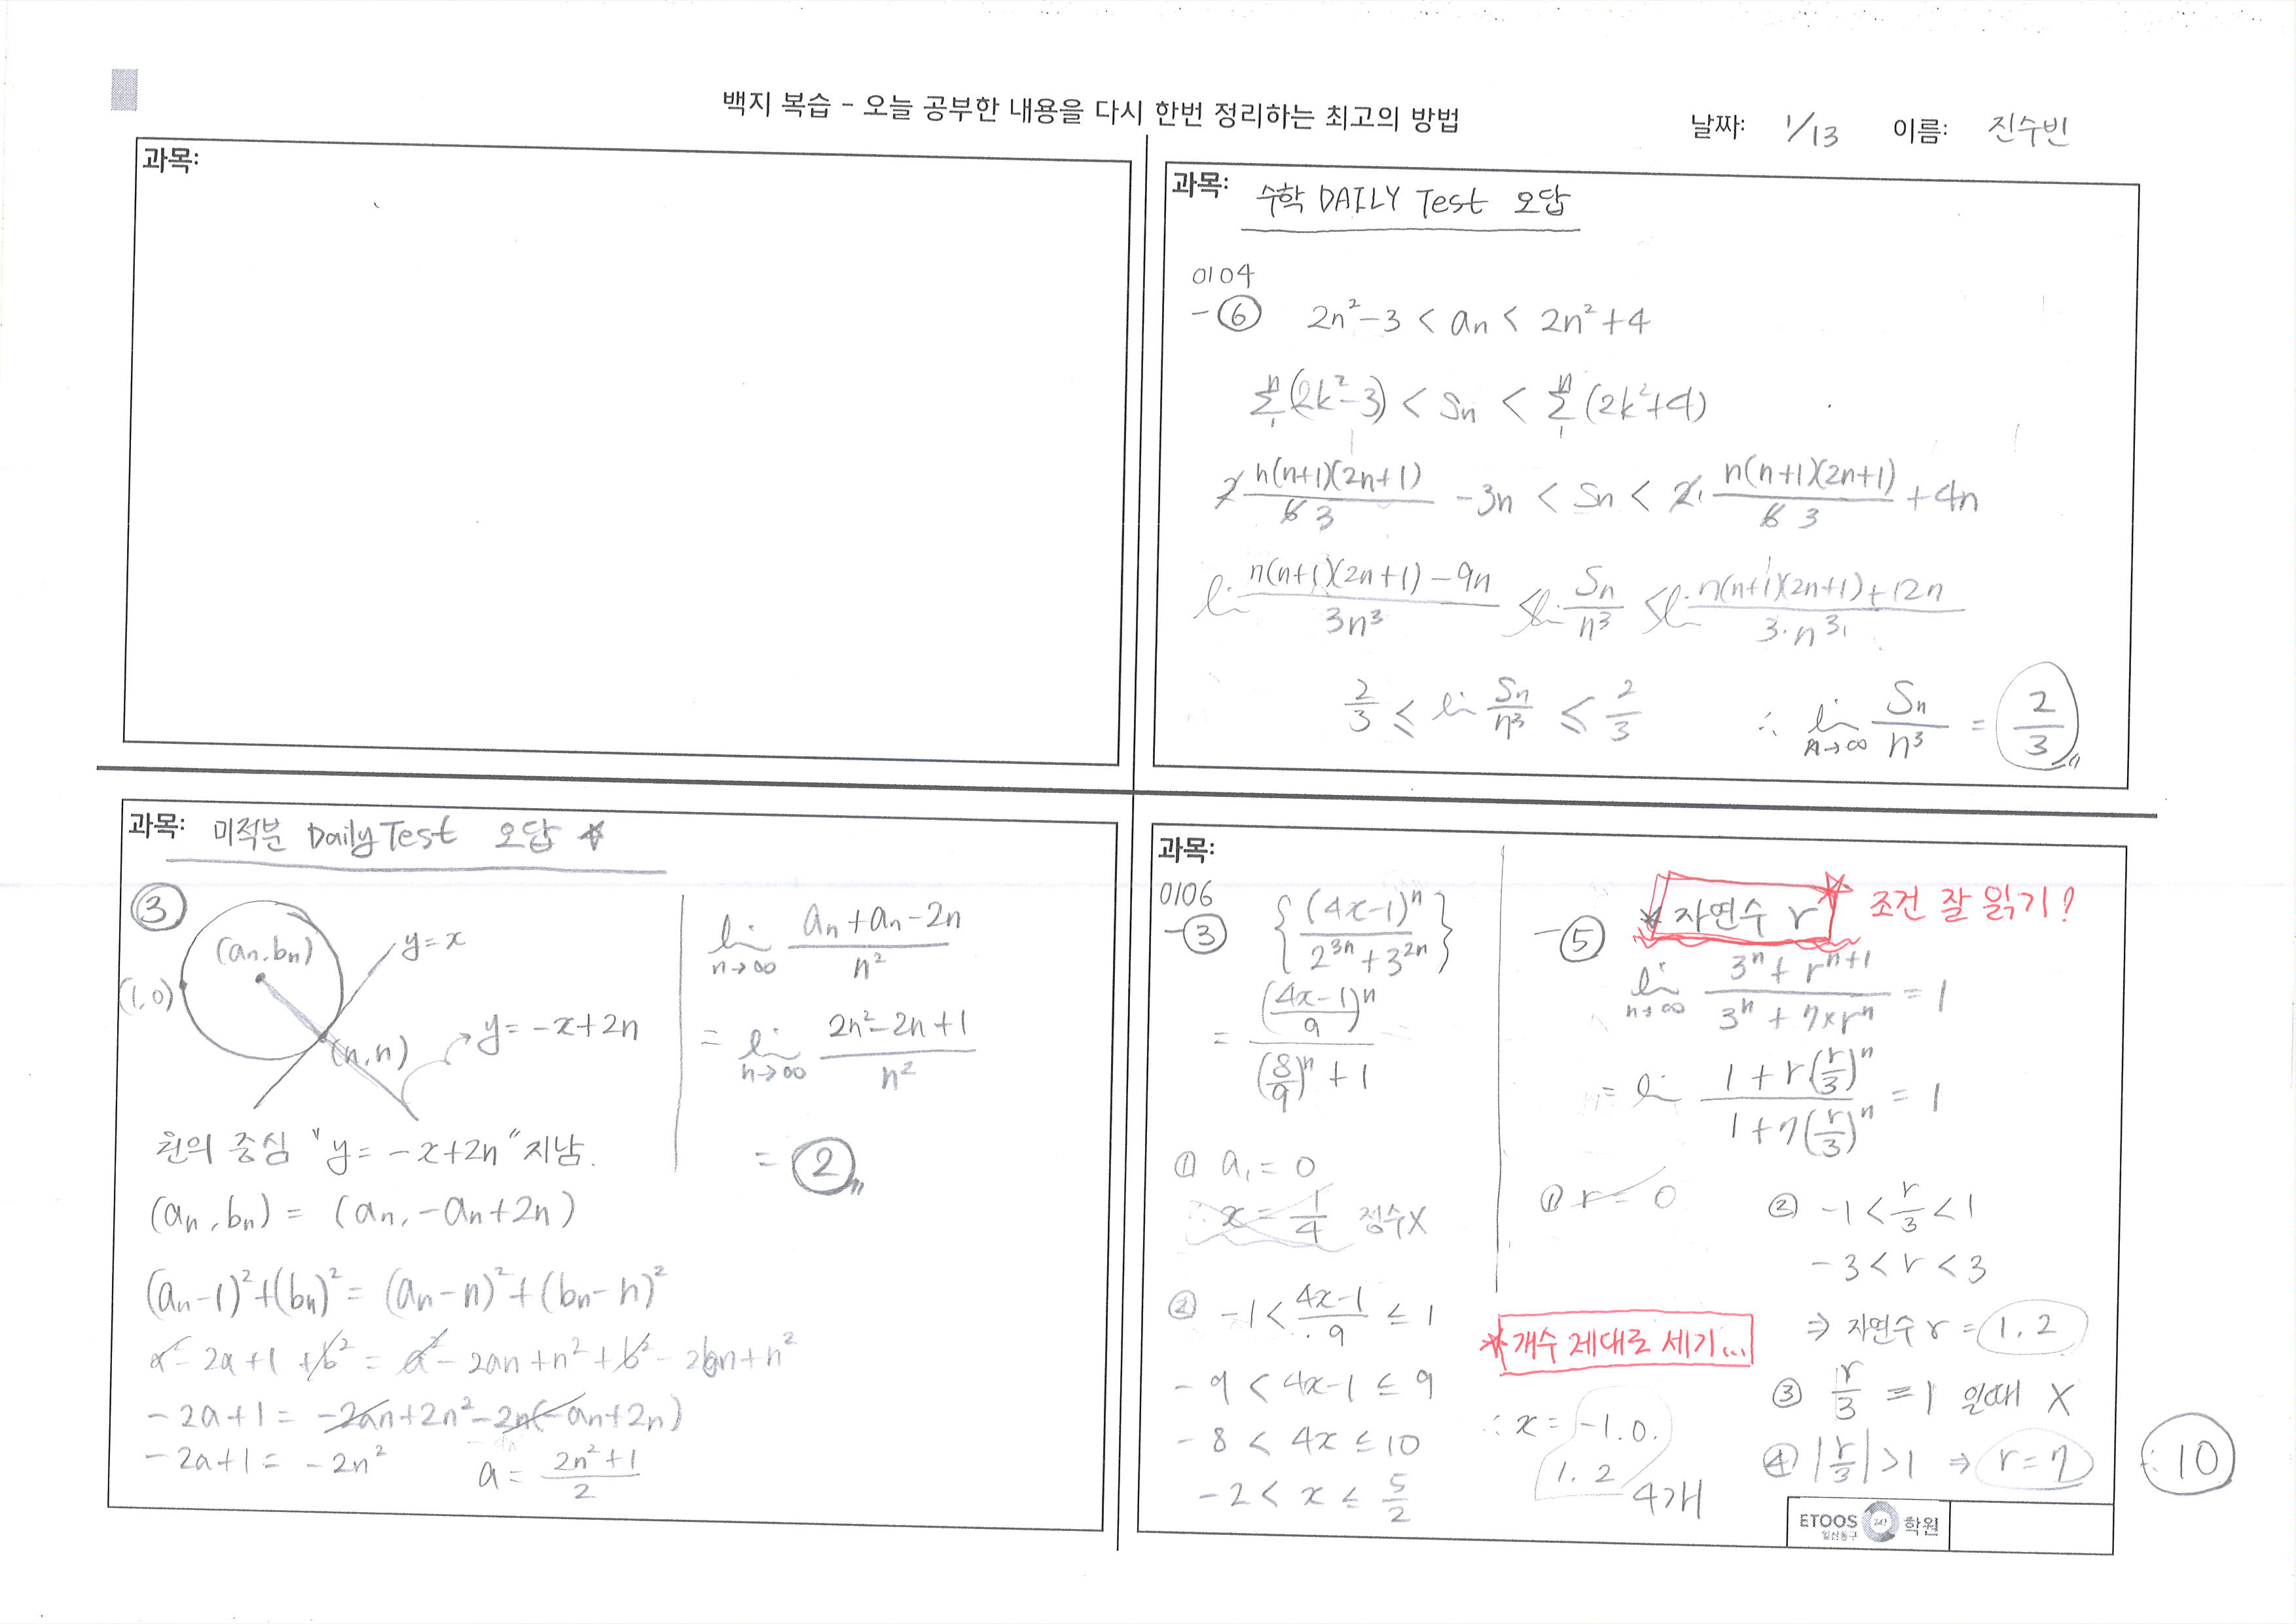 백지 복습 - 오늘 공부한 내용을 다시 한번 정리하는 최고의 방법
날짜: 1/13 이름: 진수빈
과목:
과목: 수학 DAILY Test 오답
0104
-⑥ 2n²-3 < an < 2n²+4
n∑1 (2k²-3) < Sn < n∑1 (2k²+4)
2 n(n+1)(2n+1)/6 3 -3n < Sn < 2· n(n+1)(2n+1)/6 3 +4n
lim n(n+1)(2n+1)-9n / 3n³ ≤ lim Sn/n³ ≤ lim n(n+1)(2n+1)+12n / 3·n³
2/3 ≤ lim Sn/n³ ≤ 2/3 ∴ lim n→∞ Sn/n³ = 2/3
과목: 미적분 Daily Test 오답 ☆
③
(an, bn)
y=x
(1,0)
(n,n)
y=-x+2n
원의 중심 "y=-x+2n" 지남.
(an, bn) = (an, -an+2n)
(an-1)²+(bn)² = (an-n)²+(bn-n)²
a²-2a+1+b² = a²-2an+n²+b²-2bn+n²
-2a+1 = -2an+2n²-2n(-an+2n)
-2a+1 = -2n² a = 2n²+1 / 2
lim n→∞ an+an-2n / n²
= lim n→∞ 2n²-2n+1 / n²
= ②
과목:
0106
-③ { (4x-1)ⁿ / 2³ⁿ+3²ⁿ }
= (4x-1 / 9)ⁿ / (8/9)ⁿ+1
① a₁ = 0
∴ x = 1/4 정수X
② -1 < 4x-1 / 9 ≤ 1
-9 < 4x-1 ≤ 9
-8 < 4x ≤ 10
-2 < x ≤ 5/2
★개수 제대로 세기...
∴ x = -1. 0.
1. 2 4개
-⑤ ★자연수 r 조건 잘 읽기!
lim n→∞ 3ⁿ+rⁿ⁺¹ / 3ⁿ+7×rⁿ = 1
= lim 1+r(r/3)ⁿ / 1+7(r/3)ⁿ = 1
① r = 0
② -1 < r/3 < 1
-3 < r < 3
⇒ 자연수 r = 1. 2
③ r/3 = 1 일때 X
④ |r/3| > 1 ⇒ r = 7
∴ 10
ETOOS 247 학원
일산동구